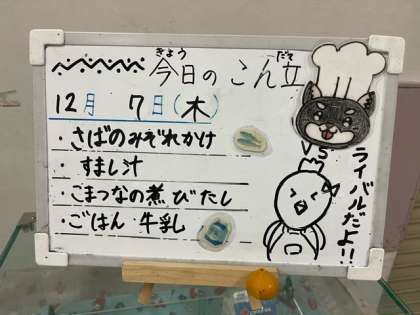 今日のこん立
きょう だて
12月 7日(木)
・さばのみぞれかけ
・すまし汁
・こまつなの煮びたし
・ごはん 牛乳
VS
ライバルだよ!!